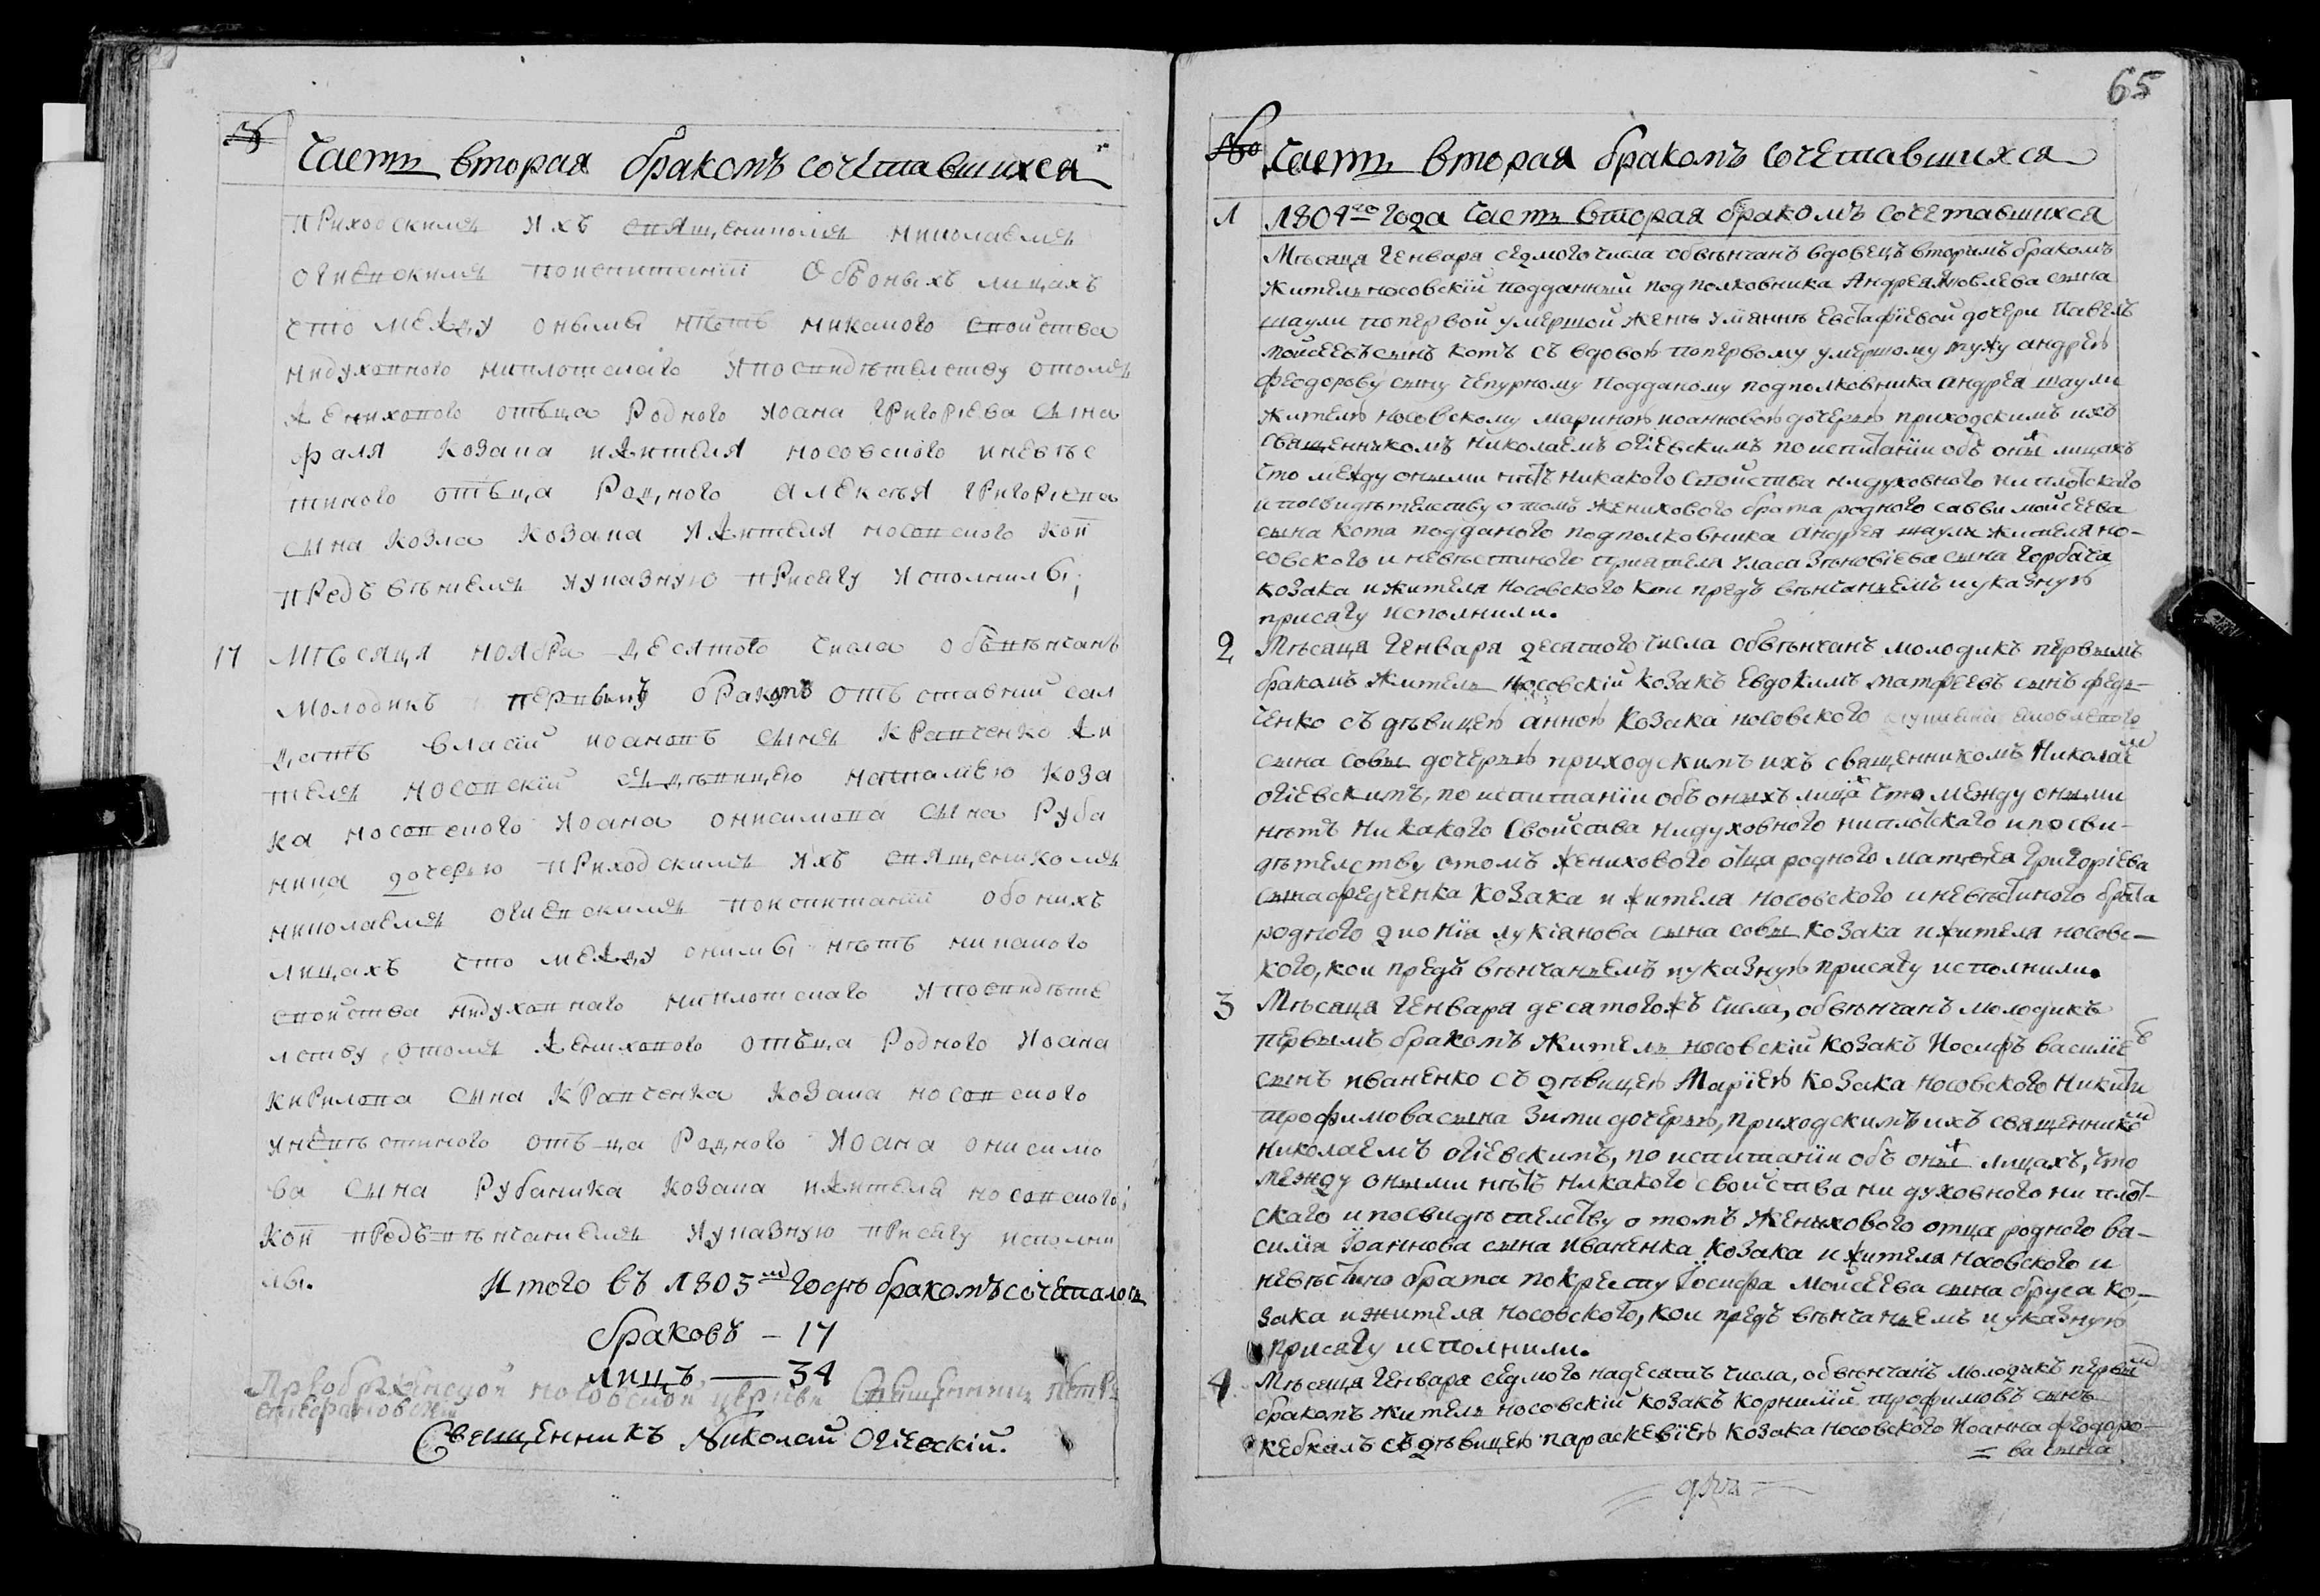 №
Часть вторая бракомъ сочетавшихся
приходскимъ ихъ священникомъ николаемъ
огиевскимъ поиспитаніи Объоныхъ лицахъ
что между онымы нетъ никакого свойства
нидуховного ниплотскаго ипосвидѣтелству отомъ
женихового отъца Родного иоана григориева сына
фаля козака ижителя носовского иневѣс
тиного отъца Родного алексѣя григориева
сына козла козака ижителя носовского кои
предъ вѣнчаніемъ иуказную присягу исполнилы;
17 Мѣсяця ноября десятого числа обвѣнчанъ
молодикъ первымъ бракомъ отъ ставний сол
датъ власій иоановъ сынъ кравченко жи
тель носовскій съдѣвицею наталиею коза
ка носовского иоана онисимова сына Руба
ника дочерью приходскимъ ихъ священикомъ
николаемъ огиевскимъ поиспитаніи обонихъ
лицахъ что между онимы нѣтъ никакого
свойства нидуховнаго ниплотскаго ипосвидѣте
лству отомъ женихового отъца Родного иоана
кирилова сына кравченка козака носовского
иневѣстиного отъца Родного иоана онисимо
ва сына Рубаника козака ижителя носовского;
кои предъвѣнчаниемъ иуказную присягу исполни
лы. Итого въ 1803мъ Годѣ бракомъ сочеталось
браковъ – 17
лицъ — 34
Преображенской носовской церкви Священникъ Петръ
Стефановскій
Священникъ Николай Огіевскій.
65
№ Часть вторая бракомъ сочетавшихся
1 1804го Года Часть вторая бракомъ сочетавшихся
Мѣсяца Генваря седмого числа обвѣнчанъ вдовецъ вторимъ бракомъ
житель носовскій подданный подполковника Андрея Яковлева сына
шаули попервой умершой женѣ Уліяннѣ Евстафіевой дочери Павелъ
Мойсеевъ сынъ котъ съ вдовою попервому умершому мужу андрею
феодорову сыну чепурному подданому подполковника андрея шаули
жителю носовскому мариною иоанновою дочерью приходскимъ ихъ
священникомъ николаемъ огіевскимъ по испитаніи объ оныхъ лицахъ
что между оными нѣтъ никакого свойства нидуховного ни плотского
и посвидѣтелству о томъ женихового брата родного савви мойсеева
сына кота подданого подполковника андрея шаули жителя но-
совского и невѣстиного пріятеля Уласа Зѣновіева сына горбача
козака и жителя носовского кои предъ вѣнчаньемъ иуказную
присягу исполнили.
2 Мѣсяца Генваря десятого числа обвѣнчанъ молодикъ первымъ
бракомъ житель носовскій козакъ Евдокимъ матфеевъ сынъ федь-
ченко съ дѣвицею анною козака носовского
сына совы дочерью приходскимъ ихъ священникомъ Николаемъ
огіевскимъ, по испитаніи объ оныхъ лицахъ что между оными
нѣтъ никакого свойства нидуховного ниплотскаго и посви-
дѣтелству о томъ женихового отца родного матфея григоріева
сына федченка козака и жителя носовского и невѣстиного брата
родного діонія лукіянова сына совы козака и жителя носовс-
кого, кои предъ вѣнчаньемъ иуказную присягу исполнили.
3 Мѣсяца Генваря десятогожъ числа, обвѣнчанъ молодикъ
первымъ бракомъ житель носовскій козакъ Иосифъ василіевъ
сынъ иваненко съ дѣвицею Маріею козака носовского Никити
трофимова сына зими дочерью, приходскимъ ихъ священникомъ
николаемъ огіевскимъ, по испитаніи объ оныхъ лицахъ, что
между оными нѣтъ никакого свойства ни духовного ни плот-
скаго и посвидѣтелству о томъ женихового отца родного ва-
силия Іоаннова сына иваненка козака и жителя носовского и
невѣстино брата по кресту Іосифа Мойсеева сына бруса ко-
зака и жителя носовского, кои предъ вѣнчаньемъ иуказную
присягу исполнили.
4 Мѣсяца Генваря седмого надесять числа, обвѣнчанъ молодикъ первымъ
бракомъ житель носовскій козакъ Корнилій трофимовъ сынъ
кебкалъ съ дѣвицею параскевіею козака носовского Иоанна феодоро-
= ва сына